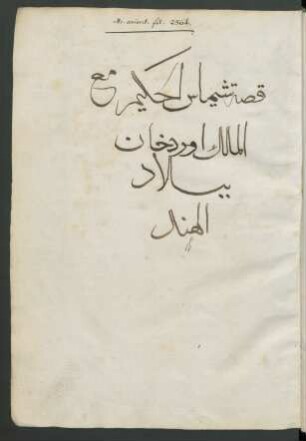 Ms. orient. fol. 2564.
قصة شيماس الحكيم مع
الملك اوردخان
ببلاد
الهند